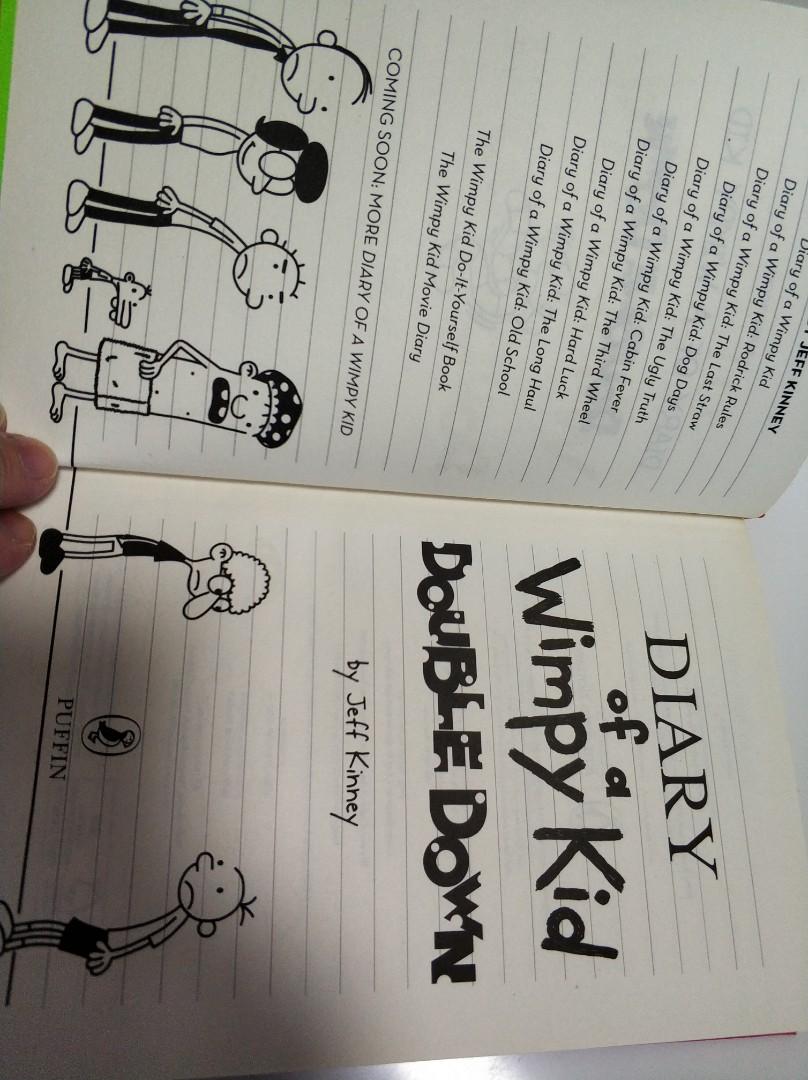 JEFF KINNEY
Diary of a Wimpy Kid
Diary of a Wimpy Kid: Rodrick Rules
Diary of a Wimpy Kid: The Last Straw
Diary of a Wimpy Kid: Dog Days
Diary of a Wimpy Kid: The Ugly Truth
Diary of a Wimpy Kid: Cabin Fever
Diary of a Wimpy Kid: The Third Wheel
Diary of a Wimpy Kid: Hard Luck
Diary of a Wimpy Kid: The Long Haul
Diary of a Wimpy Kid: Old School
The Wimpy Kid Do-It-Yourself Book
The Wimpy Kid Movie Diary
COMING SOON: MORE DIARY OF A WIMPY KID
DIARY
of a
Wimpy Kid
DOUBLE DOWN
by Jeff Kinney
PUFFIN